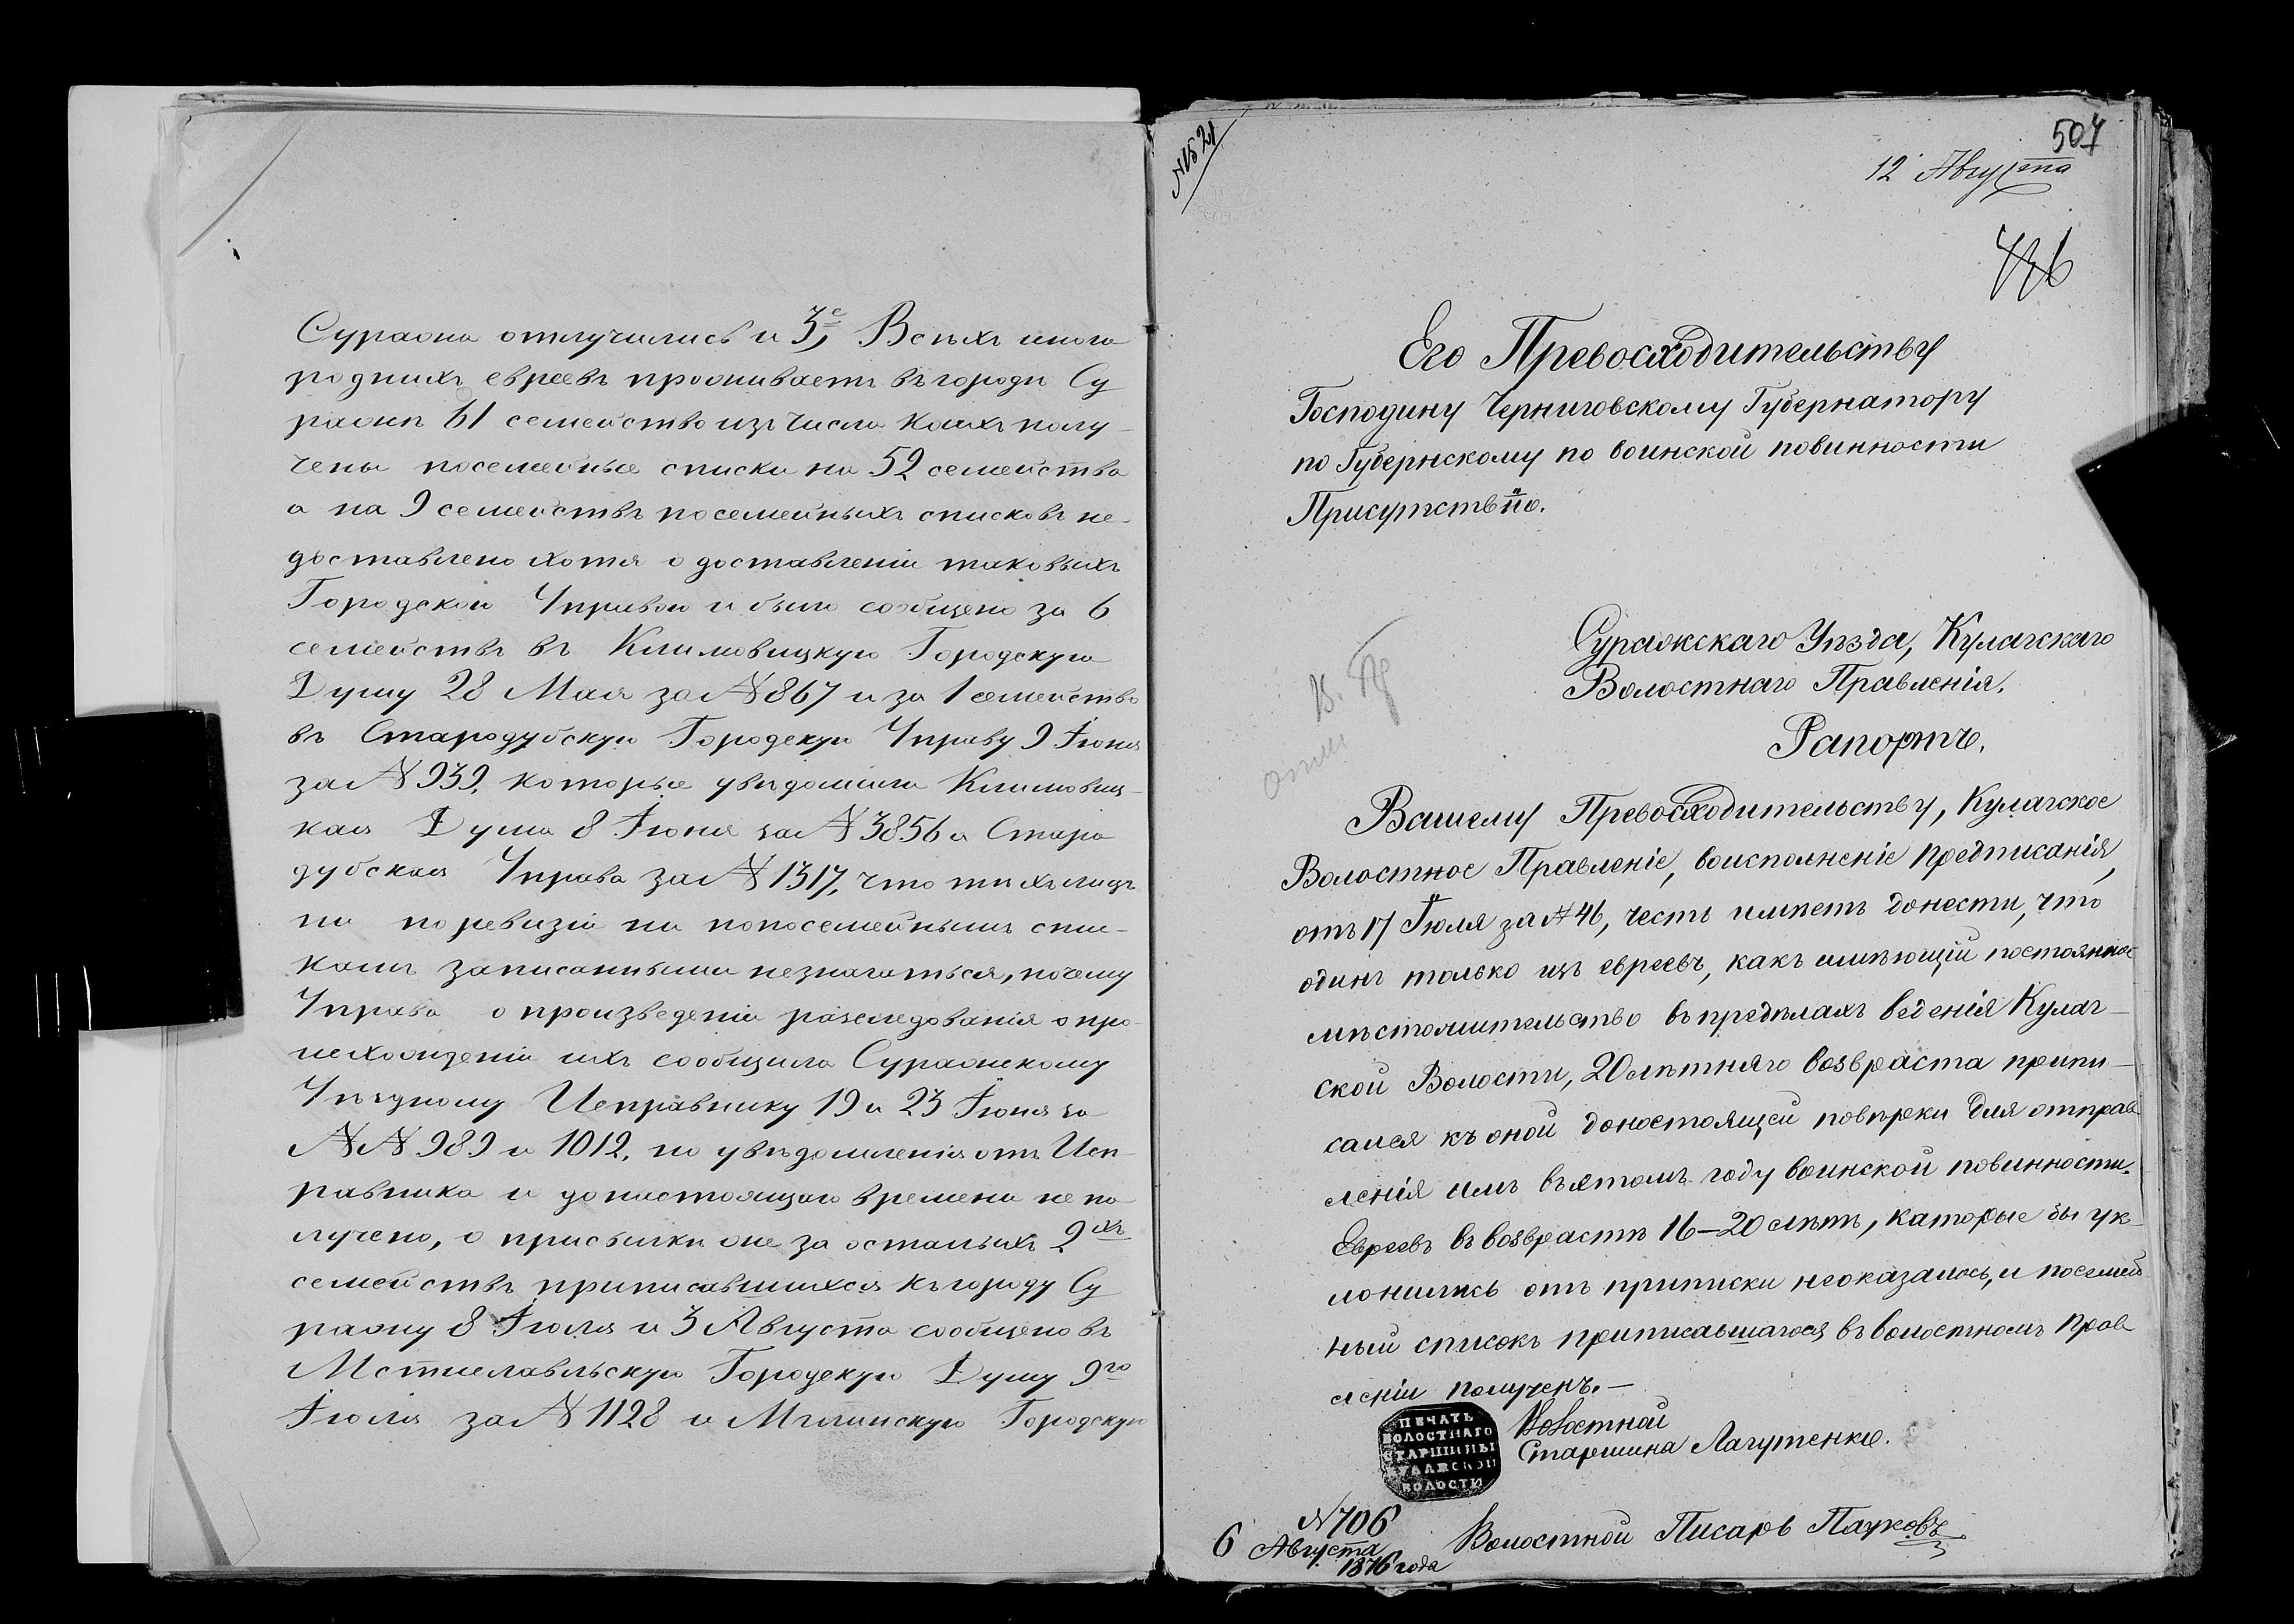 Суража отлучились и 3е, Всѣхъ иного
родныхъ евреевъ проживаетъ въ городѣ Су
ражѣ 61 семейство изъ числа коихъ полу-
чены посемейные списки на 52 семейства
а на 9 семействъ посемейныхъ списковъ не-
доставлено хотя о доставленіи таковыхъ
Городской Управой и было сообщено за 6
семействъ въ Климовицкую Городскую
Думу 28 Мая за № 867 и за 1 семейство
въ Стародубскую Городскую Управу 9 Іюня
за № 939, которые увѣдомили Климовиц-
кая Дума 8 Іюня за № 3856 а Старо
дубская Управа за № 1317, что тѣхъ лицъ
ни по ревизіи ни попосемейнымъ спис-
камъ записанными незначаться, почему
Управа о произведеніи разследованія о про-
исхожденіи ихъ сообщила Суражскому
Уѣздному Исправнику 19 и 23 Іюня за
№№ 989 и 1012, но увѣдомленія отъ Исп-
равника и до настоящаго времени не по
лучено, о присылки оне за остальныхъ 2хъ
семействъ приписавшихся къ городу Су
ражу 8 Іюля и 3 Августа сообщено въ
Мстиславльскую Городскую Думу 9го
Іюля за № 1128 и Мглинскую Городскую
507
12 Августа
Его Превосходительству
Господину Черниговскому Губернатору
по Губернскому по воинской повинности
Присутствію.
Суражскаго Уѣзда, Кулажскаго
Волостнаго Правленія.
Рапортъ.
Вашему Превосходительству, Кулажское
Волостное Правленіе, воисполненіе предписанія,
отъ 17 Іюля за № 46, честь имѣетъ донести, что
одинъ только изъ евреевъ, какъ имѣющій постоянное
мѣстожительство въ предѣлахъ веденія Кулаж-
ской Волости, 20 лѣтняго возвраста припи-
сался къ оной донастоящей повѣрки для отправ
ленія имъ въ этомъ году воинской повинности.
Евреевъ въ возврастѣ 16-20 лѣтъ, каторые бы ук-
лонились отъ приписки неоказалось, и посемей-
ный списокъ приписавшагося въ волостномъ прав
леніи полученъ.-
ПЕЧАТЬ
ВОЛОСТНАГО
СТАРШИНЫ
КУЛАЖСКОЙ
ВОЛОСТИ
Волостной
Старшина Лагутенко.
№ 706
6 Августа
1876 года
Волостной Писарь Пауковъ